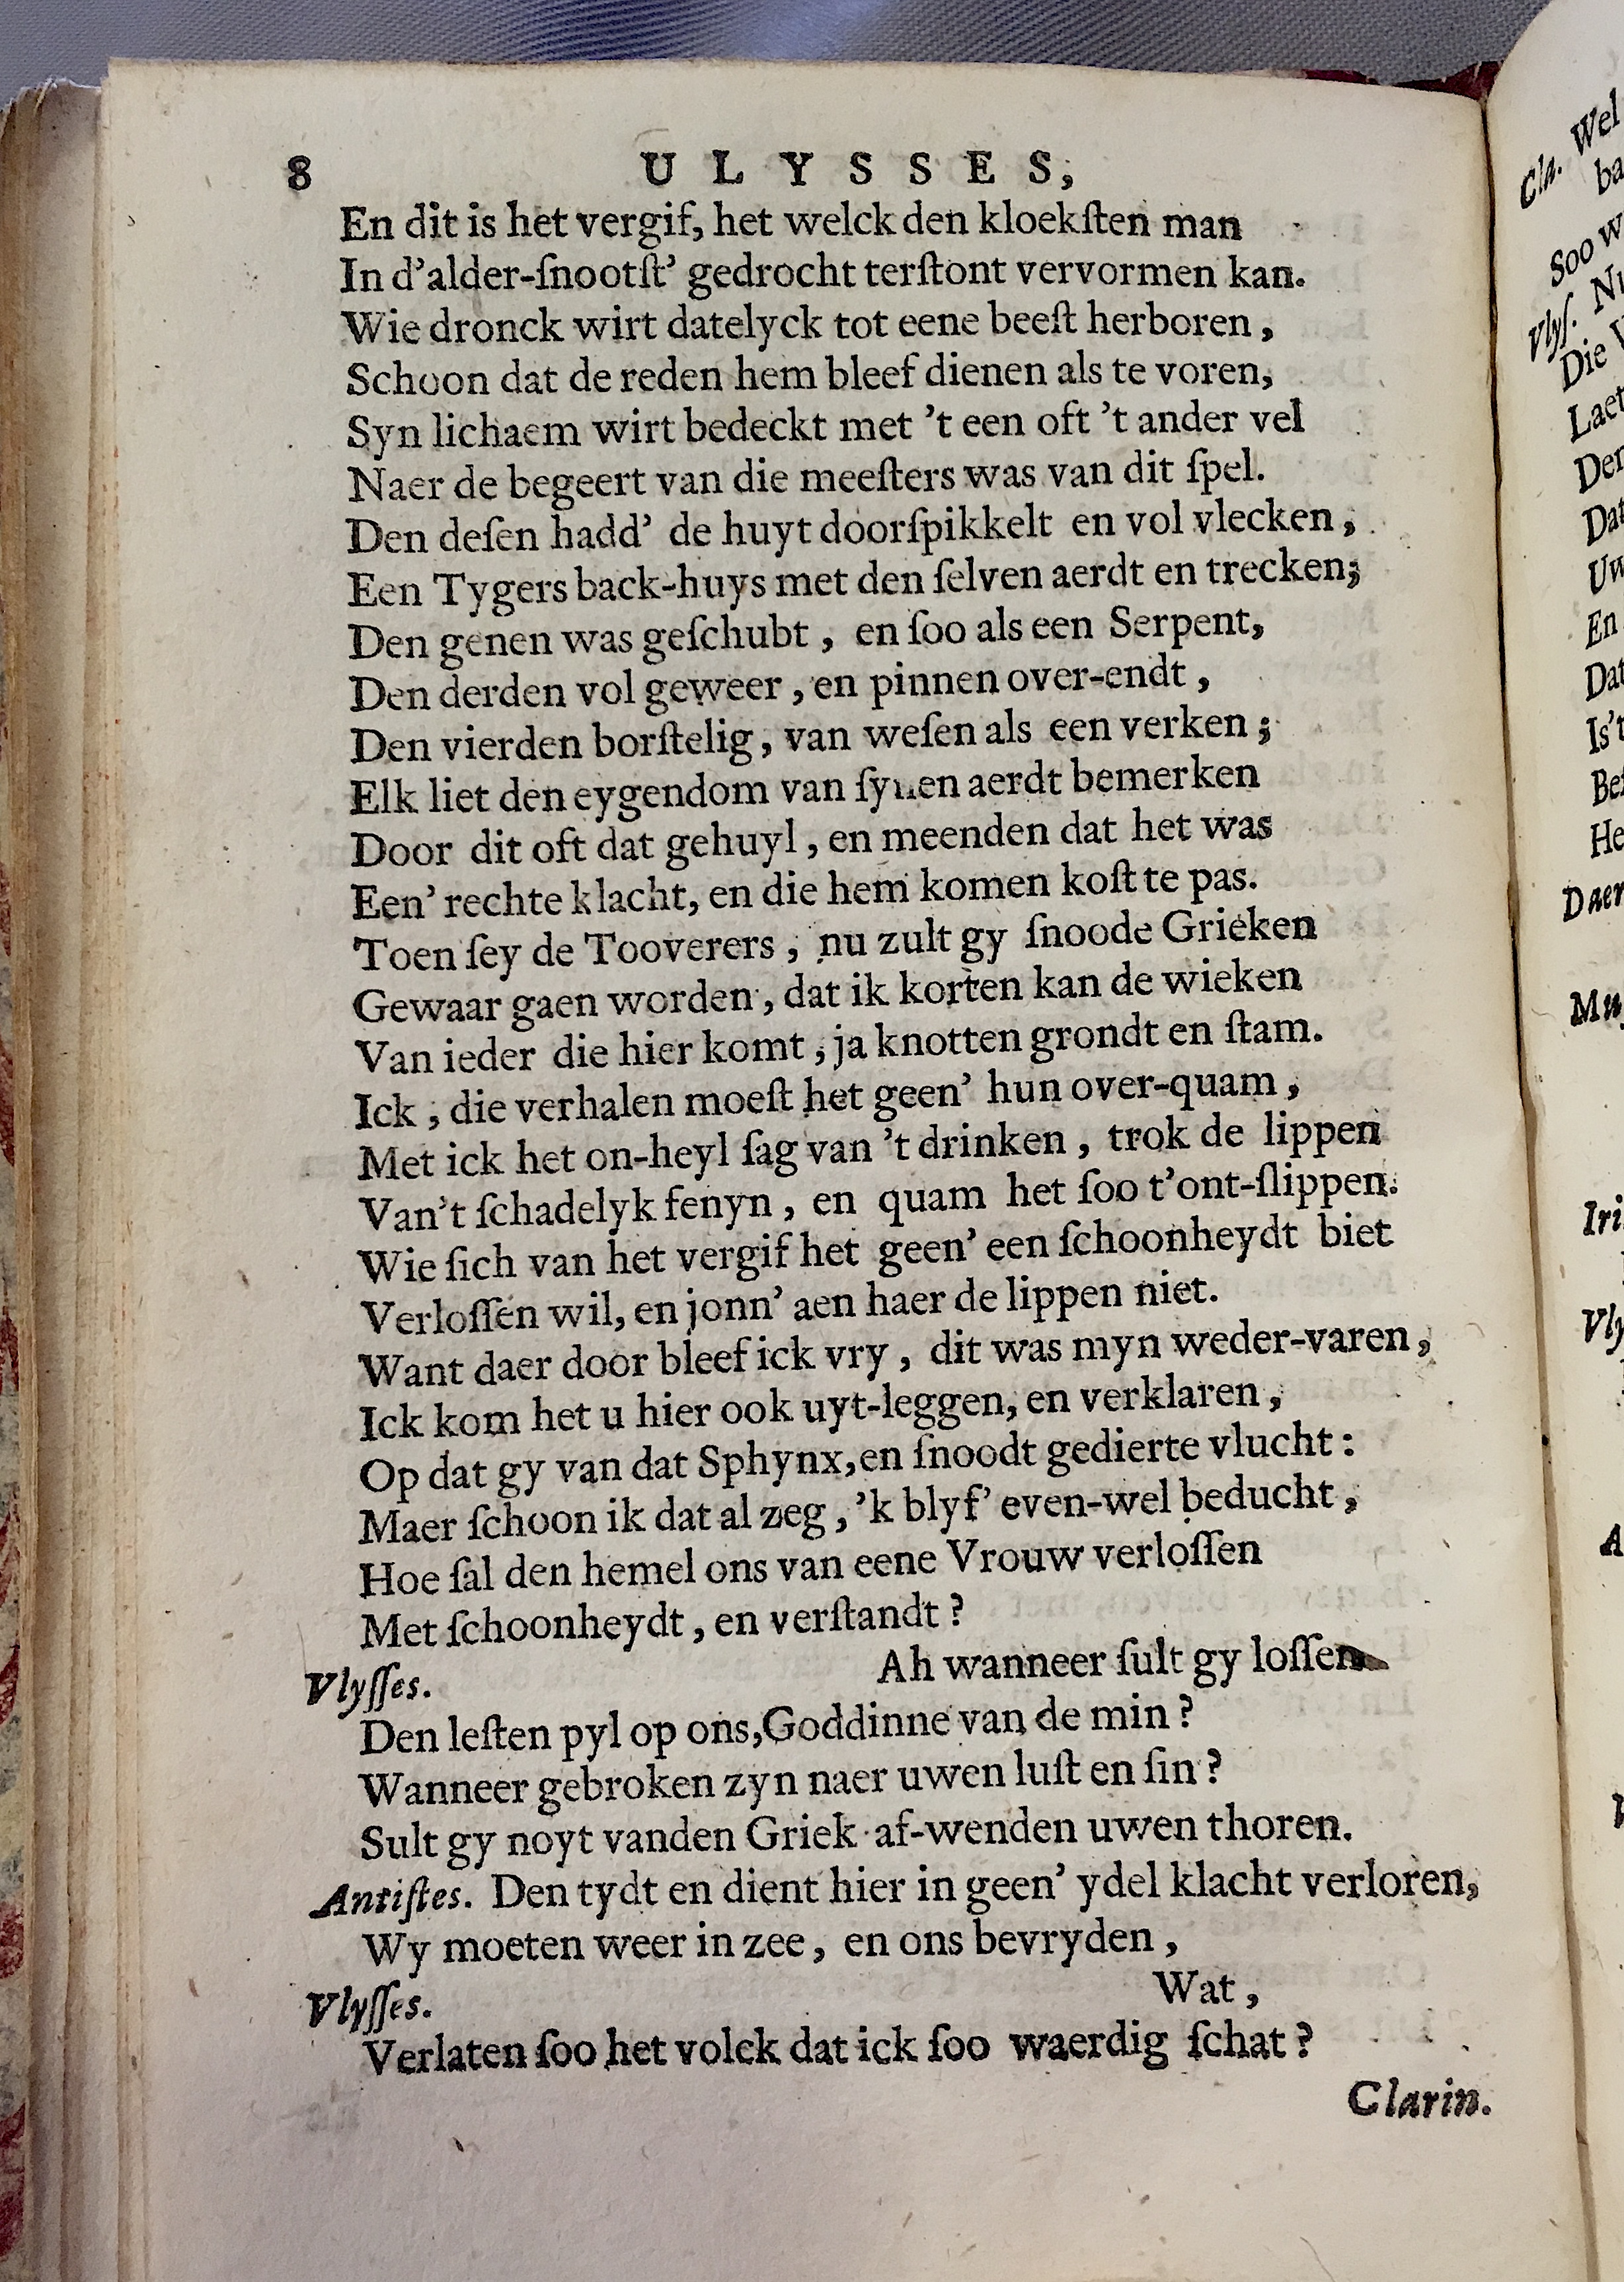 8 ULYSSES,
En dit is het vergif, het welck den kloekſten man
In d'alder-ſnootſt' gedrocht terſtont vervormen kan.
Wie dronck wirt datelyck tot eene beeſt herboren,
Schoon dat de reden hem bleef dienen als te voren,
Syn lichaem wirt bedeckt met 't een oft 't ander vel
Naer de begeert van die meeſters was van dit ſpel.
Den deſen hadd' de huyt doorſpikkelt en vol vlecken,
Een Tygers back-huys met den ſelven aerdt en trecken;
Den genen was geſchubt, en ſoo als een Serpent,
Den derden vol geweer, en pinnen over-endt,
Den vierden borſtelig, van weſen als een verken;
Elk liet den eygendom van ſynen aerdt bemerken
Door dit oft dat gehuyl, en meenden dat het was
Een' rechte klacht, en die hem komen koſt te pas.
Toen ſey de Tooverers, nu zult gy ſnoode Grieken
Gewaar gaen worden, dat ik korten kan de wieken
Van ieder die hier komt, ja knotten grondt en ſtam.
Ick, die verhalen moeſt het geen' hun over-quam,
Met ick het on-heyl ſag van 't drinken, trok de lippen
Van't ſchadelyk fenyn, en quam het ſoo t'ont-ſlippen.
Wie ſich van het vergif het geen' een ſchoonheydt biet
Verloſſen wil, en jonn' aen haer de lippen niet.
Want daer door bleef ick vry, dit was myn weder-varen,
Ick kom het u hier ook uyt-leggen, en verklaren,
Op dat gy van dat Sphynx, en ſnoodt gedierte vlucht:
Maer ſchoon ik dat al zeg, 'k blyf' even-wel beducht,
Hoe ſal den hemel ons van eene Vrouw verloſſen
Met ſchoonheydt, en verſtandt?
Vlyſſes. Ah wanneer ſult gy loſſen
Den leſten pyl op ons, Goddinne van de min?
Wanneer gebroken zyn naer uwen luſt en ſin?
Sult gy noyt vanden Griek af-wenden uwen thoren.
Antiſtes. Den tydt en dient hier in geen' ydel klacht verloren,
Wy moeten weer in zee, en ons bevryden,
Vlyſſes. Wat,
Verlaten ſoo het volck dat ick ſoo waerdig ſchat?
Clarin.
Cla. Wel
ba
Soo w
Vlyſ.
Die
Laet
Dat
Uw
En
Dat
Is't
He
Daer